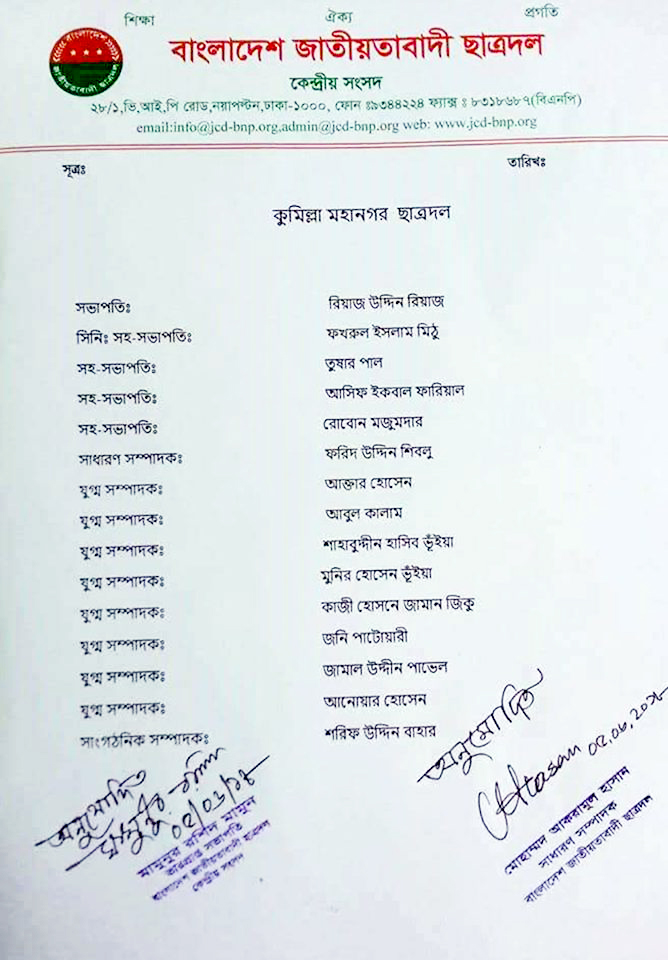 শিক্ষা ঐক্য প্রগতি
বাংলাদেশ জাতীয়তাবাদী ছাত্রদল
কেন্দ্রীয় সংসদ
২৮/১,ভি,আই,পি রোড,নয়াপল্টন,ঢাকা-১০০০, ফোন ঃ৯৩৪৪২২৪ ফ্যাক্স ঃ ৮৩১৮৬৮৭(বিএনপি)
email:info@jcd-bnp.org,admin@jcd-bnp.org web: www.jcd-bnp.org
সূত্রঃ তারিখঃ
কুমিল্লা মহানগর ছাত্রদল
সভাপতিঃ রিয়াজ উদ্দিন রিয়াজ
সিনিঃ সহ-সভাপতিঃ ফখরুল ইসলাম মিঠু
সহ-সভাপতিঃ তুষার পাল
সহ-সভাপতিঃ আসিফ ইকবাল ফারিয়াল
সহ-সভাপতিঃ রোবোন মজুমদার
সাধারণ সম্পাদকঃ ফরিদ উদ্দিন শিবলু
যুগ্ম সম্পাদকঃ আক্তার হোসেন
যুগ্ম সম্পাদকঃ আবুল কালাম
যুগ্ম সম্পাদকঃ শাহাবুদ্দীন হাসিব ভূঁইয়া
যুগ্ম সম্পাদকঃ মুনির হোসেন ভূঁইয়া
যুগ্ম সম্পাদকঃ কাজী হোসনে জামান জিকু
যুগ্ম সম্পাদকঃ জনি পাটোয়ারী
যুগ্ম সম্পাদকঃ জামাল উদ্দীন পাভেল
যুগ্ম সম্পাদকঃ আনোয়ার হোসেন
সাংগঠনিক সম্পাদকঃ শরিফ উদ্দিন বাহার
অনুমোদিত
মামুনুর রশিদ মামুন
ভারপ্রাপ্ত সভাপতি
বাংলাদেশ জাতীয়তাবাদী ছাত্রদল
কেন্দ্রীয় সংসদ
অনুমোদিত
মোহাম্মদ আকরামুল হাসান
সাধারণ সম্পাদক
বাংলাদেশ জাতীয়তাবাদী ছাত্রদল